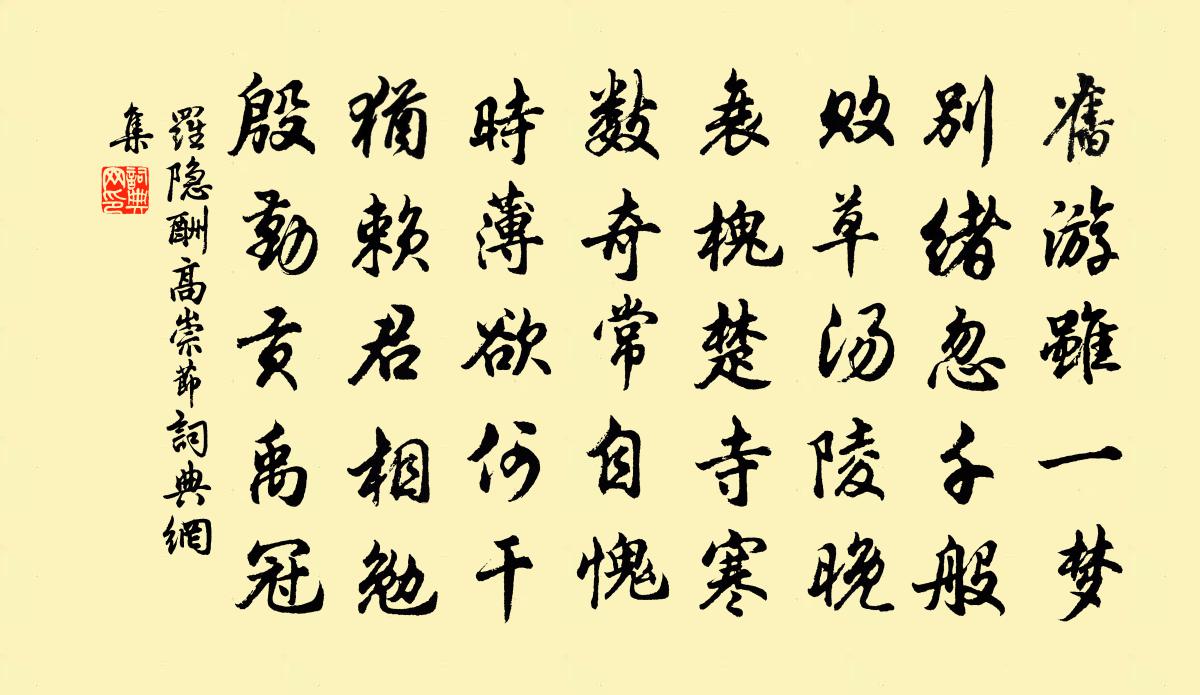 舊游雖一梦
别緒忽千般
败草汤陵晚
衰槐楚寺寒
数奇常自愧
時薄欲何干
猶赖君相勉
殷勤贡禹冠
羅隐酬高崇節詞典網
集
詞典网印